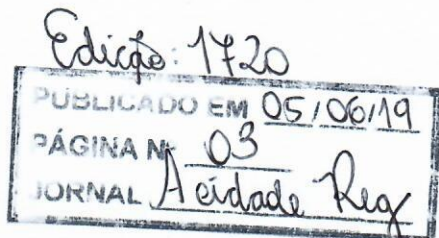 Edição: 1720
PUBLICADO EM 05/06/19
PÁGINA Nº 03
JORNAL A cidade Reg